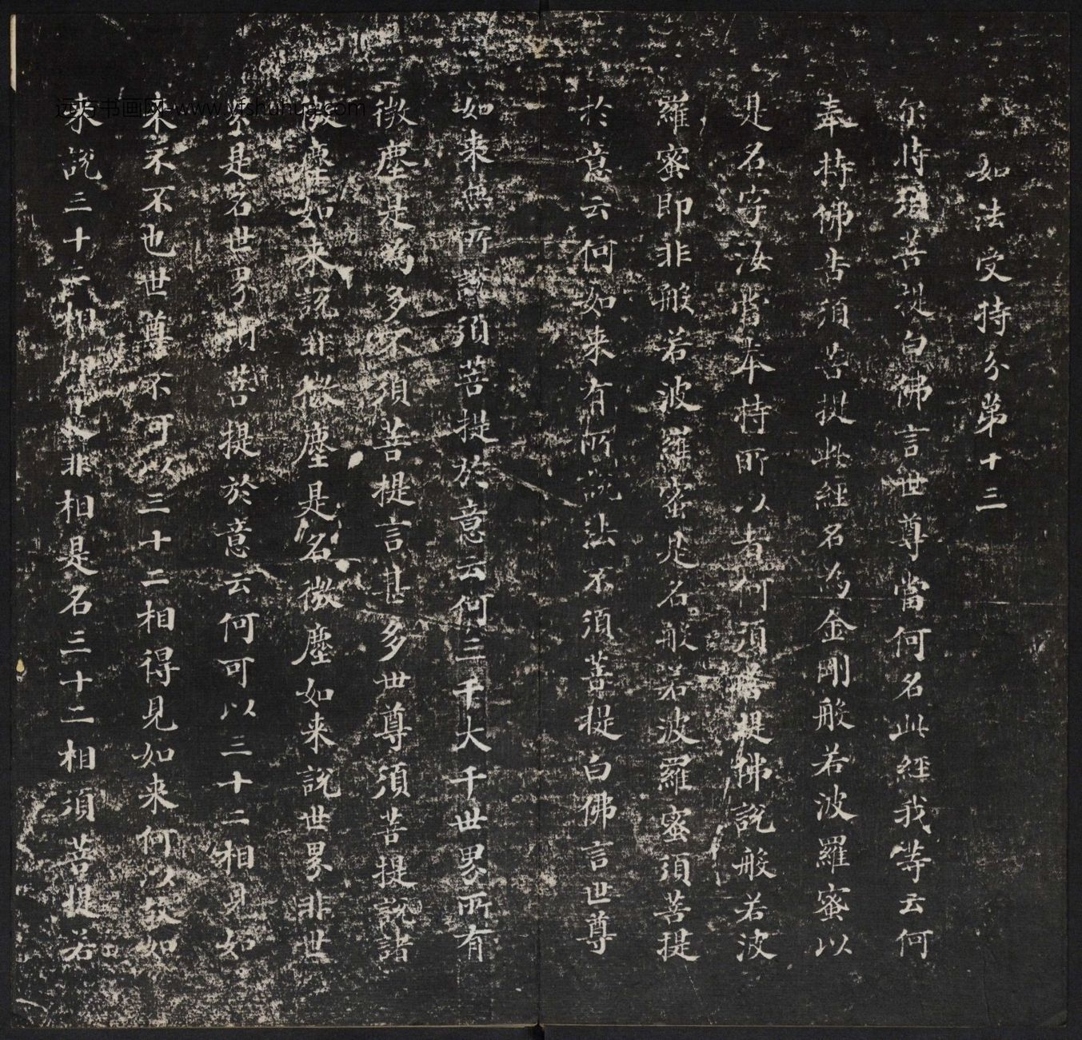 如法受持分第十三
尔時須菩提白佛言世尊當何名此經我等云何
奉持佛告須菩提此經名為金剛般若波羅蜜以
是名字汝當奉持所以者何須菩提佛說般若波
羅蜜即非般若波羅蜜是名般若波羅蜜須菩提
於意云何如来有所說法不須菩提白佛言世尊
如来無所說須菩提於意云何三千大千世界所有
微塵是為多不須菩提言甚多世尊須菩提諸
微塵如来說非微塵是名微塵如来說世界非世
界是名世界須菩提於意云何可以三十二相見如
来不不也世尊不可以三十二相得見如来何以故如
来說三十二相即是非相是名三十二相須菩提若
远方书画网 www.yfshuhua.com